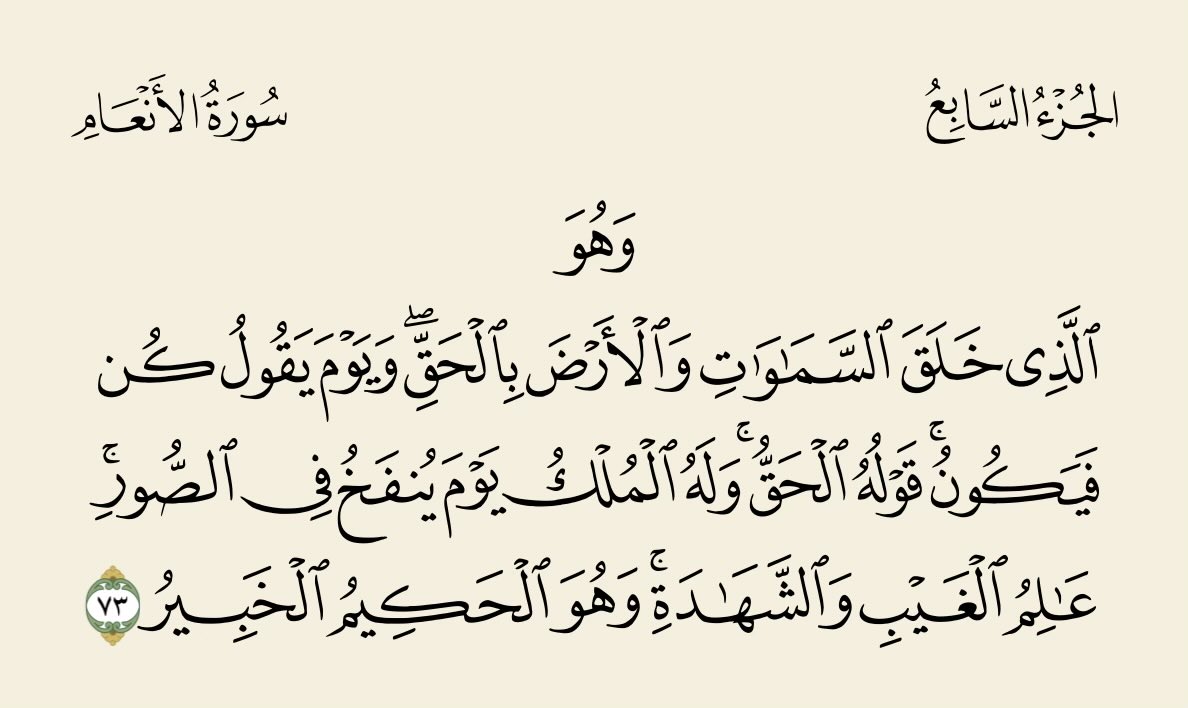 الجُزْءُ السَّابِعُ
سُورَةُ الأَنْعَامِ
وَهُوَ
ٱلَّذِى خَلَقَ ٱلسَّمَـٰوَٰتِ وَٱلْأَرْضَ بِٱلْحَقِّ ۖ وَيَوْمَ يَقُولُ كُن
فَيَكُونُ ۚ قَوْلُهُ ٱلْحَقُّ ۚ وَلَهُ ٱلْمُلْكُ يَوْمَ يُنفَخُ فِى ٱلصُّورِ ۚ
عَـٰلِمُ ٱلْغَيْبِ وَٱلشَّهَـٰدَةِ ۚ وَهُوَ ٱلْحَكِيمُ ٱلْخَبِيرُ ٧٣